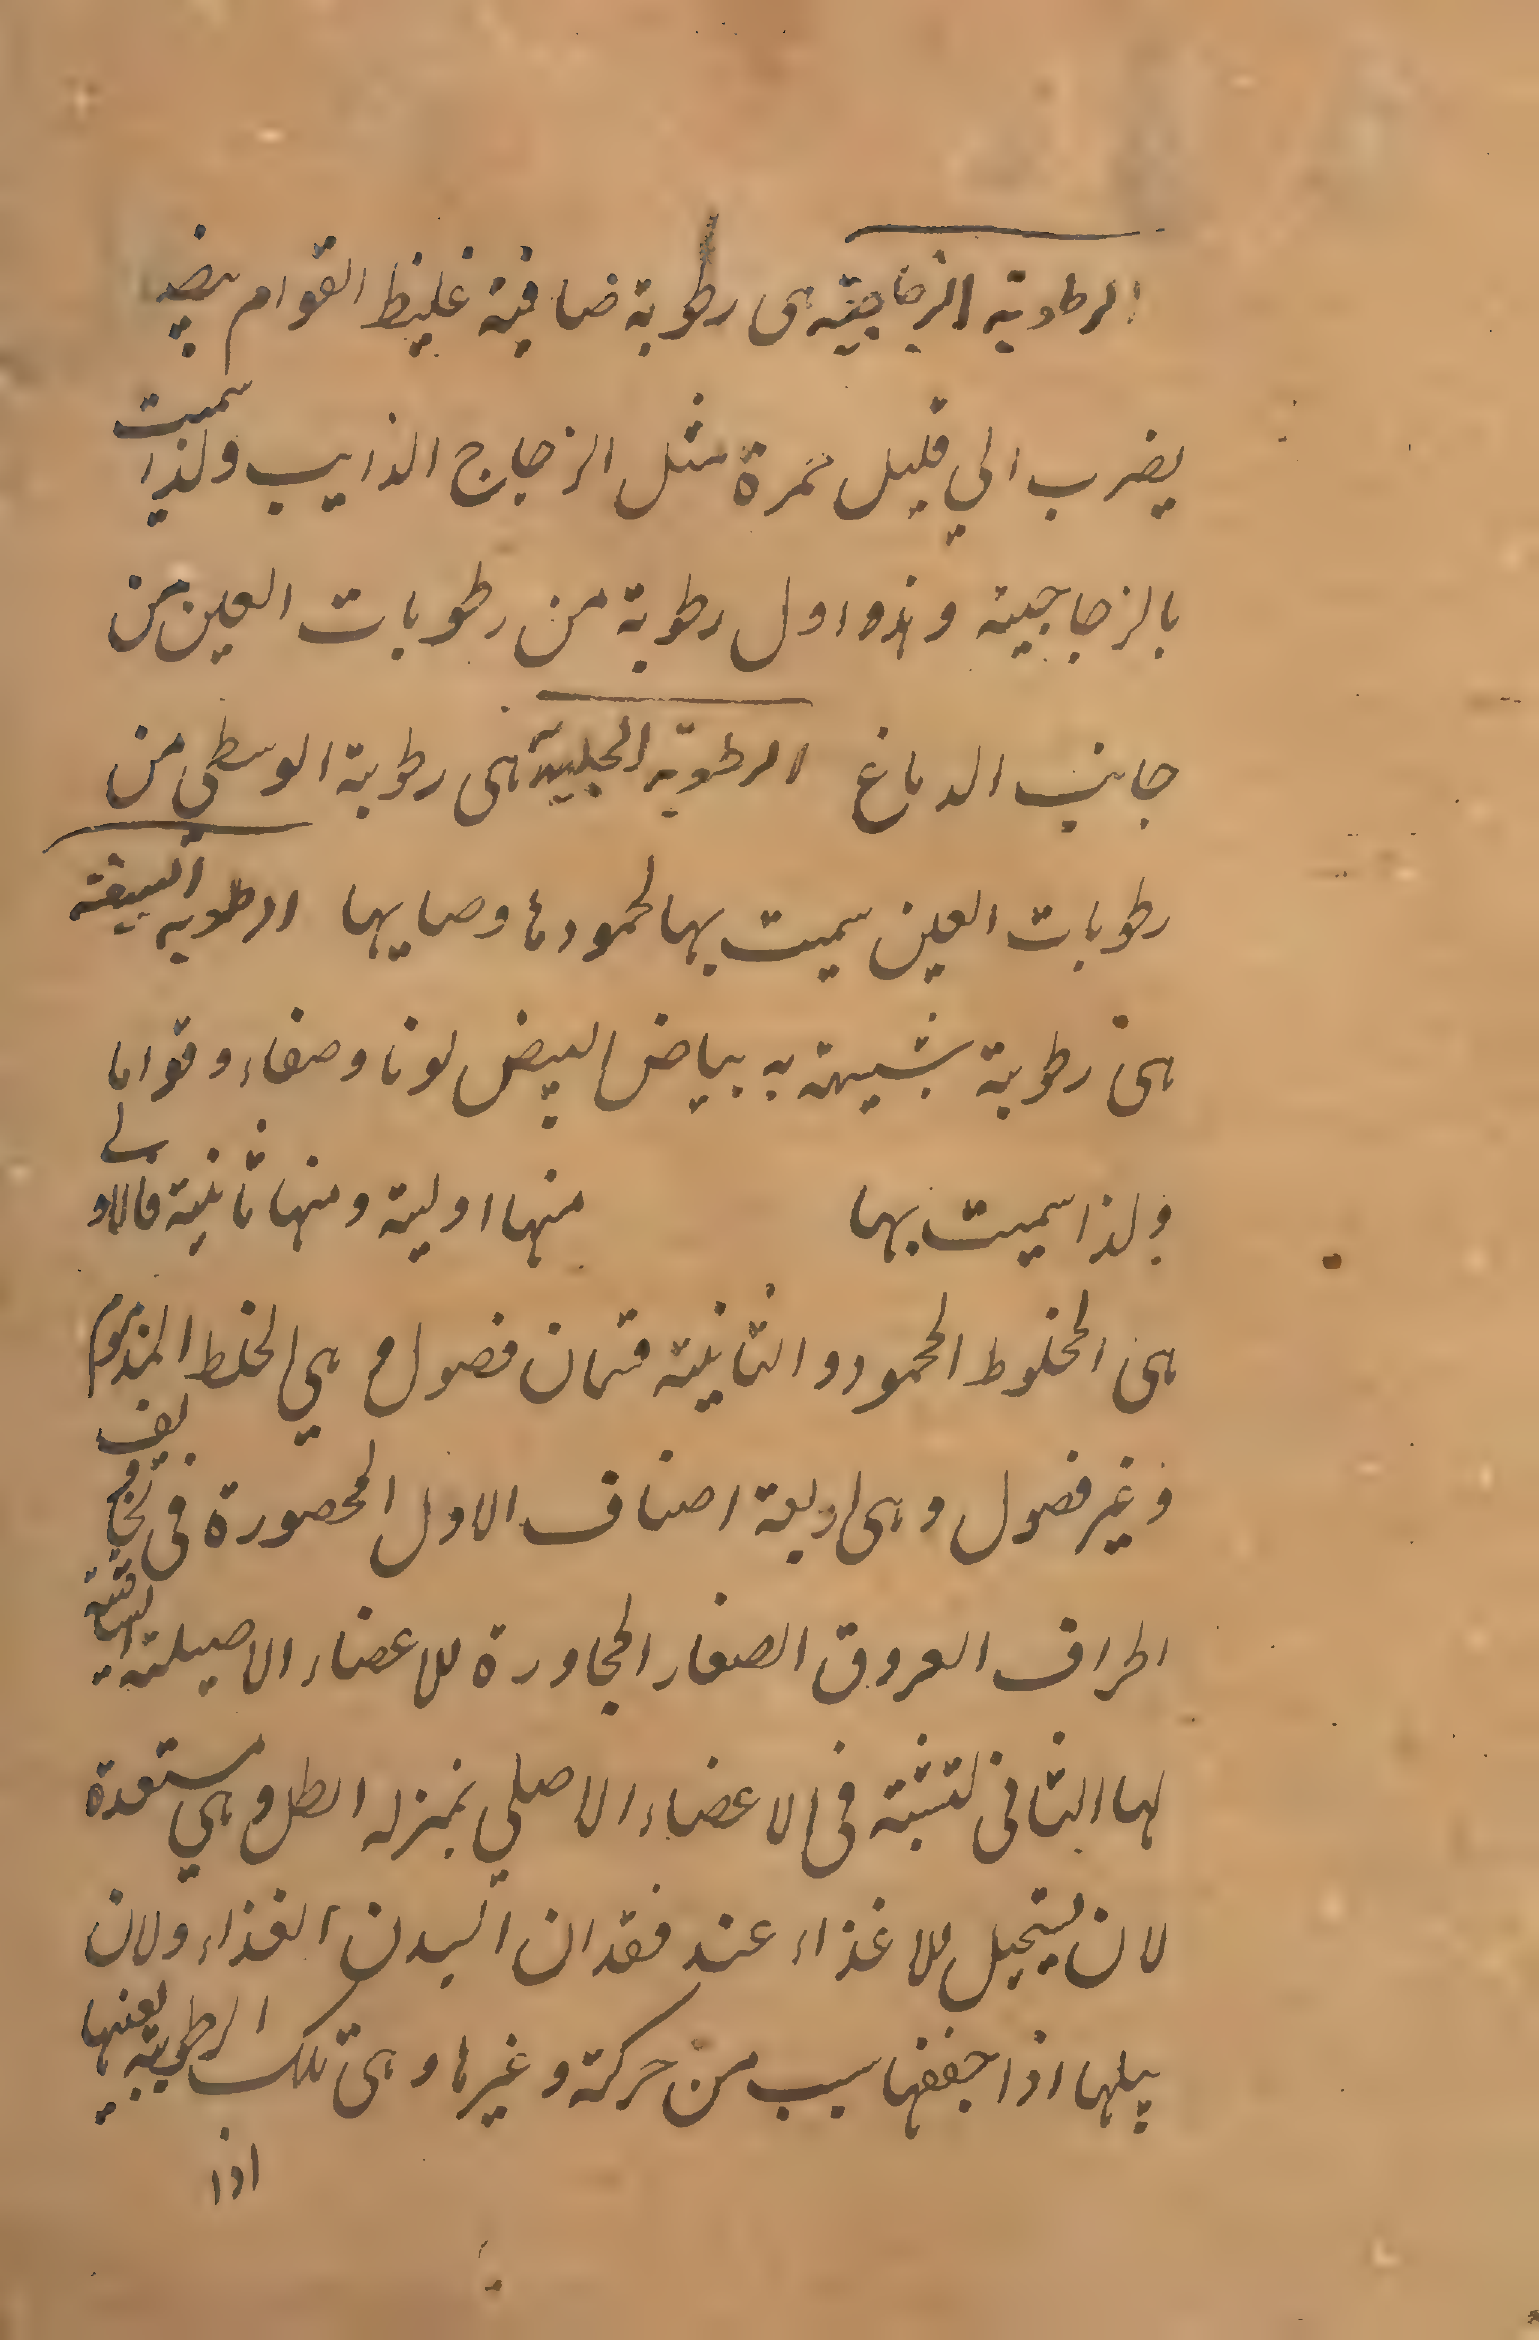 الرطوبة الزجاجية هى رطوبة ضافية غليظ القوام بيضـ
يضرب الي قليل حمرة مثل الزجاج الذايب ولذا سميت
بالزجاجية وهذه اول رطوبة من رطوبات العين من
جانب الدماغ الرطوبة الجليدية هى رطوبة الوسطي من
رطوبات العين سميت بها لجمودها وصايها الرطوبة البيضة
هى رطوبة شبيهة به ببياض البيض لونا وصفاء وقواما
ولذا سميت بها منها اولية ومنها ثانية فالاولے
هى الخلوط المحمود والثانية قسمان فضول هي الخلط المذموم
وغير فضول وهى اربعة اصناف الاول المحصورة فى تجاويف
اطراف العروق الصغار المجاورة للاعضاء الاصيلة الساقية
لها الثانى لتشبثة فى الاعضاء الاصلي بمنزله الطل وهي مستعدة
لان يستحيل للاغذاء عند فقدان البدن الغذاء ولان
يبلها اذا جففها سبب من حركة وغيرها وهى تلك الرطوبة بعينها
اذا